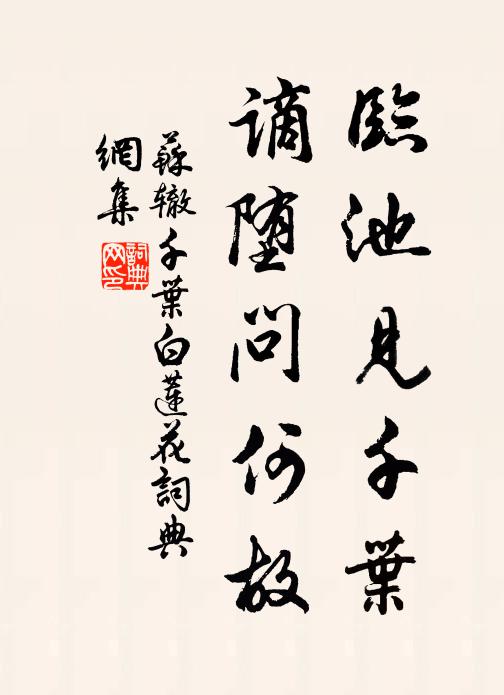 臨池見千葉
謫堕問何故
蘇轍千葉白蓮花詞典
網集
詞典
网印